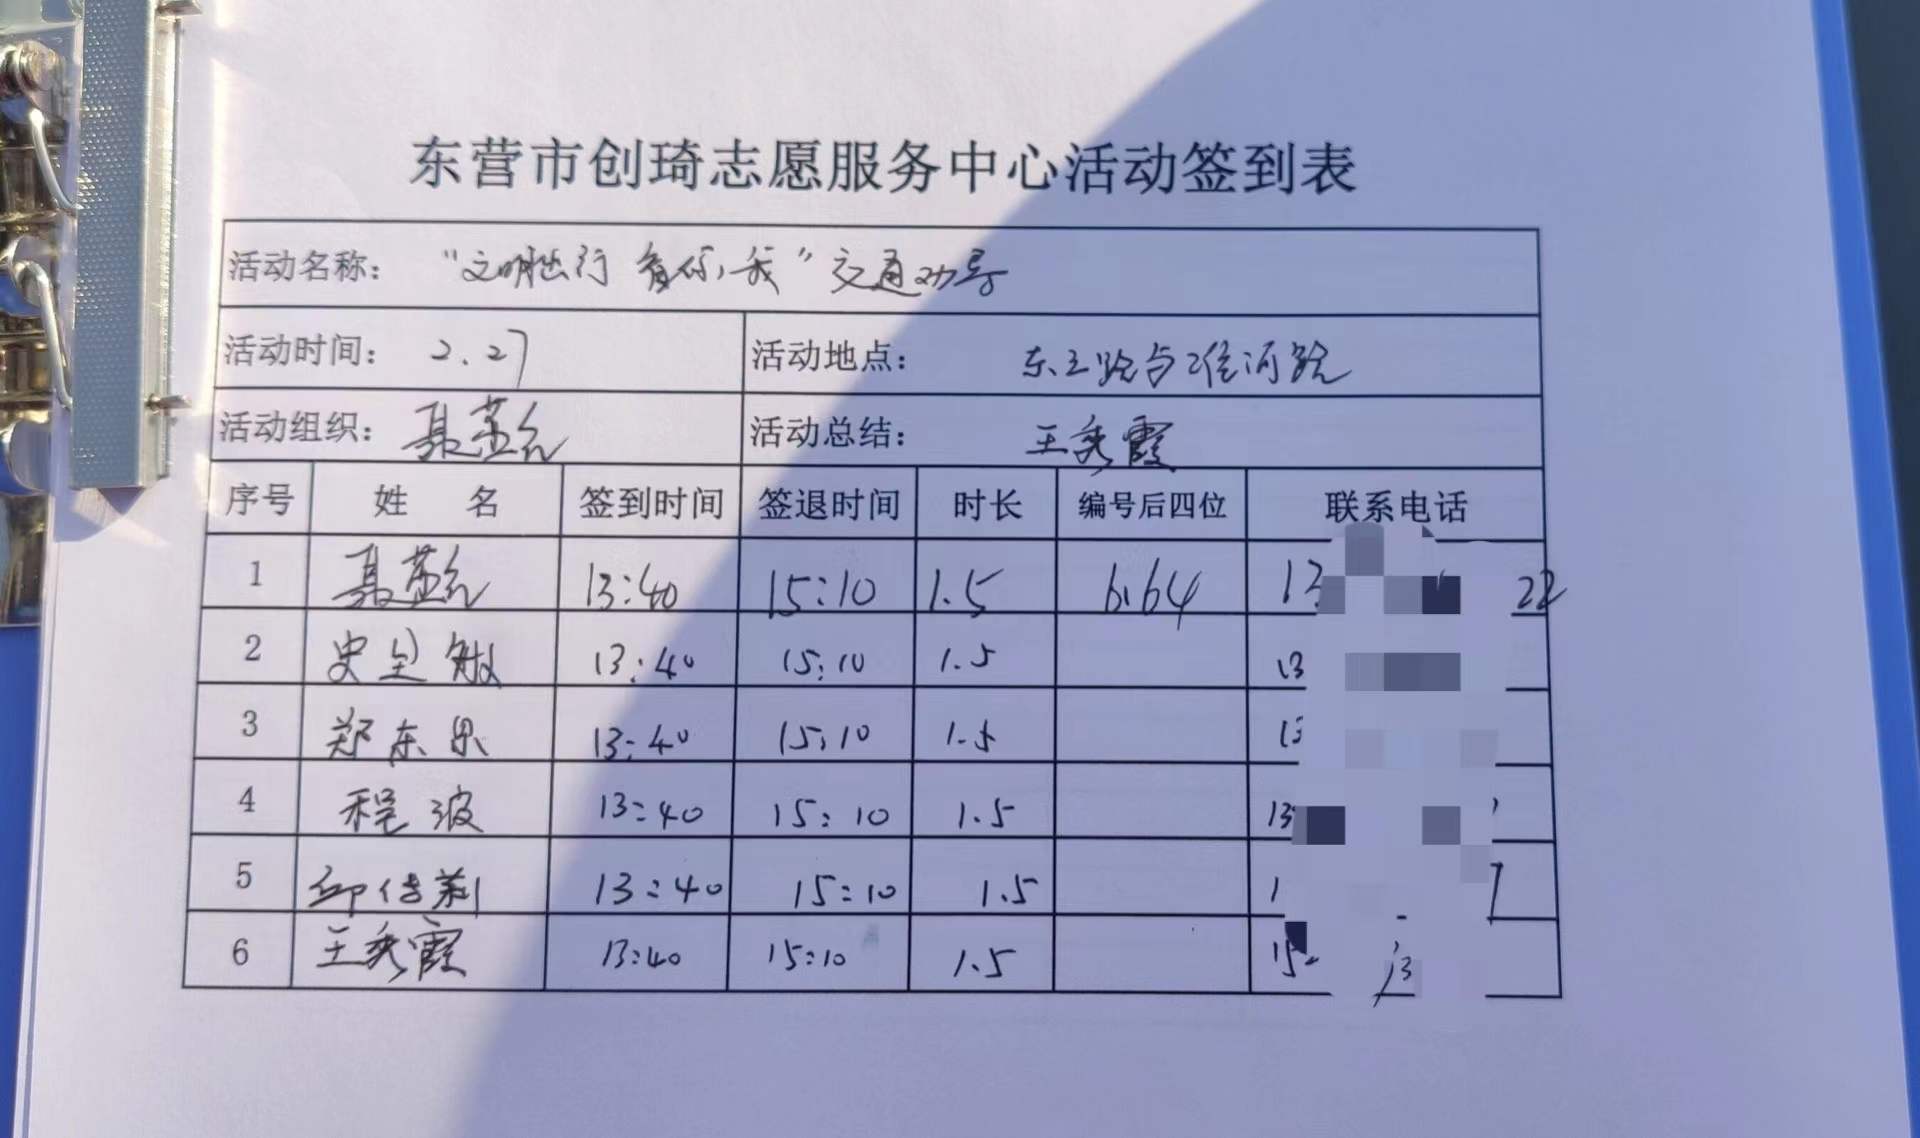 东营市创琦志愿服务中心活动签到表
活动名称： “文明出行 有你，我” 交通劝导
活动时间： 2.27 活动地点： 东三路与淮河路
活动组织： 活动总结： 王秀霞
序号 姓 名 签到时间 签退时间 时长 编号后四位 联系电话
1 13:40 15:10 1.5 6164 13 22
2 史全敏 13:40 15:10 1.5 13
3 郑东果 13:40 15:10 1.5 13
4 程波 13:40 15:10 1.5 13
5 邱传莉 13:40 15:10 1.5 1
6 王秀霞 13:40 15:10 1.5 15 13